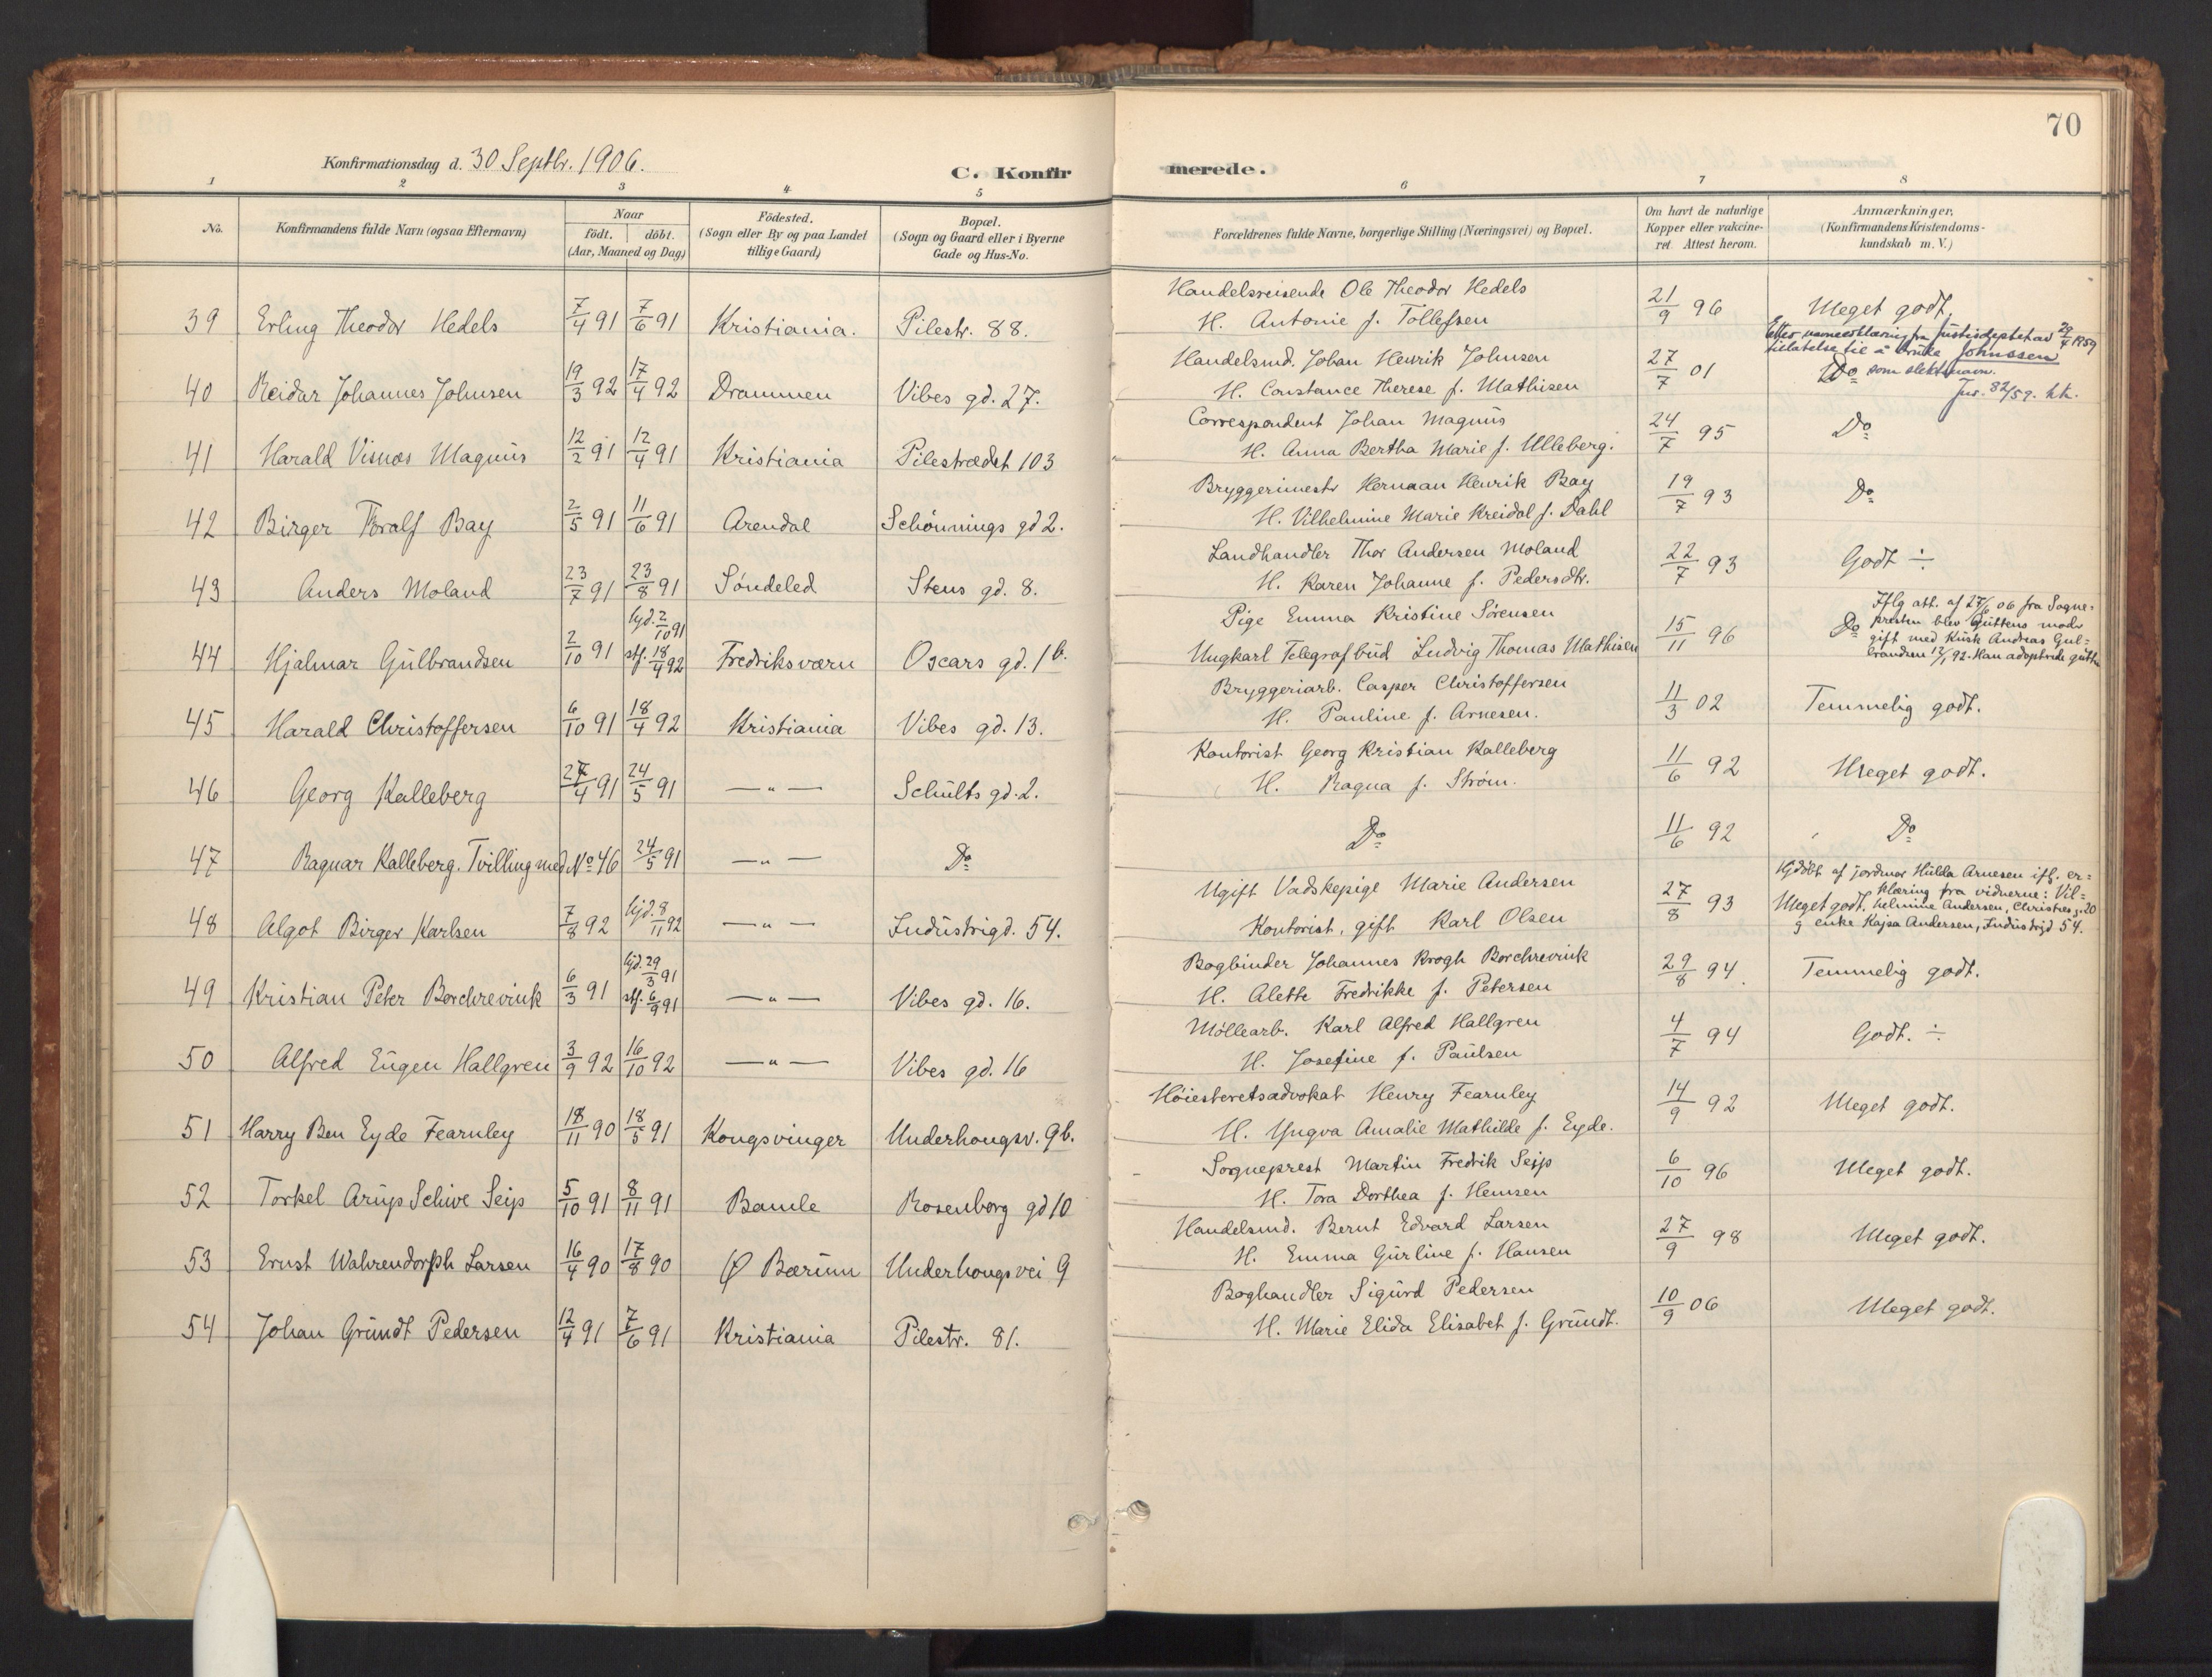 70
Konfirmationsdag d. 30 Septbr. 1906.
C. Konfirmerede.
1 2 3 4 5 6 7 8
No.
Konfirmandens fulde Navn (ogsaa Efternavn)
Naar
født. døbt.
(Aar, Maaned og Dag)
Fødested.
(Sogn eller By og paa Landet
tillige Gaard)
Bopæl.
(Sogn og Gaard eller i Byerne
Gade og Hus-No.
Forældrenes fulde Navne, borgerlige Stilling (Næringsvei) og Bopæl.
Om havt de naturlige
Kopper eller vakcine-
ret. Attest herom.
Anmærkninger.
(Konfirmandens Kristendoms-
kundskab m. V.)
39 Erling Theodor Hedels 7/4 91 7/6 91 Kristiania. Pilestr. 88.
Handelsreisende Ole Theodor Hedels
H. Antonie f. Tollefsen
21/9 96 Meget godt.
40 Reidar Johannes Johnsen 19/3 92 17/4 92 Drammen Vibes gd. 27.
Handelsmd. Johan Henrik Johnsen
H. Constance Therese f. Mathisen
27/7 01 Do
Etter navneerklæring fra Justisdeptet av 29/4 1959
tillatelse til å bruke Johnssen
som slektsnavn.
Jnr. 82/59. hk.
41 Harald Visnæs Magnus 12/2 91 12/4 91 Kristiania Pilestrædet 103
Correspondent Johan Magnus
H. Anna Bertha Marie f. Ulleberg.
24/7 95 Do
42 Birger Thoralf Bay 2/5 91 11/6 91 Arendal Schønnings gd 2.
Bryggerimestr Herman Henrik Bay
H. Vilhelmine Marie Kreidal f. Dahl
19/7 93 Do
43 Anders Moland 23/7 91 23/8 91 Søndeled Stens gd. 8.
Landhandler Thor Andersen Moland
H. Karen Johanne f. Pedersdtr.
22/7 93 Godt ÷
44 Hjalmar Gulbrandsen 2/10 91 hjd. 2/10 91 stf. 18/4 92 Fredriksværn Oscars gd. 1b.
Pige Emma Kristine Sørensen
Ungkarl Telegrafbud Ludvig Thomas Mathisen
15/11 96 Do
Iflg att. af 27/6 06 fra Sogne-
presten blev guttens moder
gift med Kusk Andreas Gul-
brandsen 12/1 92. Han adopterede gutten
45 Harald Christoffersen 6/10 91 18/4 92 Kristiania Vibes gd. 13.
Bryggeriarb. Casper Christoffersen
H. Pauline f. Arnesen.
11/3 02 Temmelig godt.
46 Georg Kalleberg 27/4 91 24/5 91 — „ — Schults gd. 2.
Kontorist Georg Kristian Kalleberg
H. Ragna f. Strøm.
11/6 92 Meget godt.
47 Ragnar Kalleberg. Tvilling med No 46 24/5 91 — „ — Do
Do
11/6 92 Do
48 Algot Birger Karlsen 7/8 92 hjd. 8/11 92 — „ — Industrigd. 54.
Ugift Vadskepige Marie Andersen
Kontorist, gift Karl Olsen
27/8 93 Meget godt.
Hjdøbt af jordmor Hulda Arnesen ifl. er-
klæring fra vidnerne: Vil-
helmine Andersen, Christies g. 20
g enke Kajsa Andersen, Industrigd 54.
49 Kristian Peter Borchrevink 6/3 91 hjd. 29/3 91 stf. 6/9 91 — „ — Vibes gd. 16.
Bogbinder Johannes Krogh Borchrevink
H. Alette Fredrikke f. Petersen
29/8 94. Temmelig godt.
50 Alfred Eugen Hallgren 3/9 92 16/10 92 — „ — Vibes gd. 16
Møllearb. Karl Alfred Hallgren
H. Josefine f. Paulsen
4/7 94 Godt. ÷
51 Harry Ben Eyde Fearnley 18/11 90 18/5 91 Kongsvinger Underhougsv. 9b.
Høiesteretsadvokat Henry Fearnley
H. Yngva Amalie Mathilde f. Eyde.
14/9 92 Meget godt.
52 Torkel Arup Schive Seip 5/10 91 8/11 91 Bamle Rosenborg gd 10
Sogneprest Martin Fredrik Seip
H. Tora Dorthea f. Hemsen
6/10 96 Meget godt.
53 Ernst Wahrendorph Larsen 16/4 90 17/8 90 Ø Bærum Underhougsvei 9
Handelsmd. Bernt Edvard Larsen
H. Emma Gurline f. Hansen
27/9 98 Meget godt.
54 Johan Grundt Pedersen 12/4 91 7/6 91 Kristiania Pilestr. 81.
Boghandler Sigurd Pedersen
H. Marie Elida Elisabet f. Grundt.
10/9 06 Meget godt.